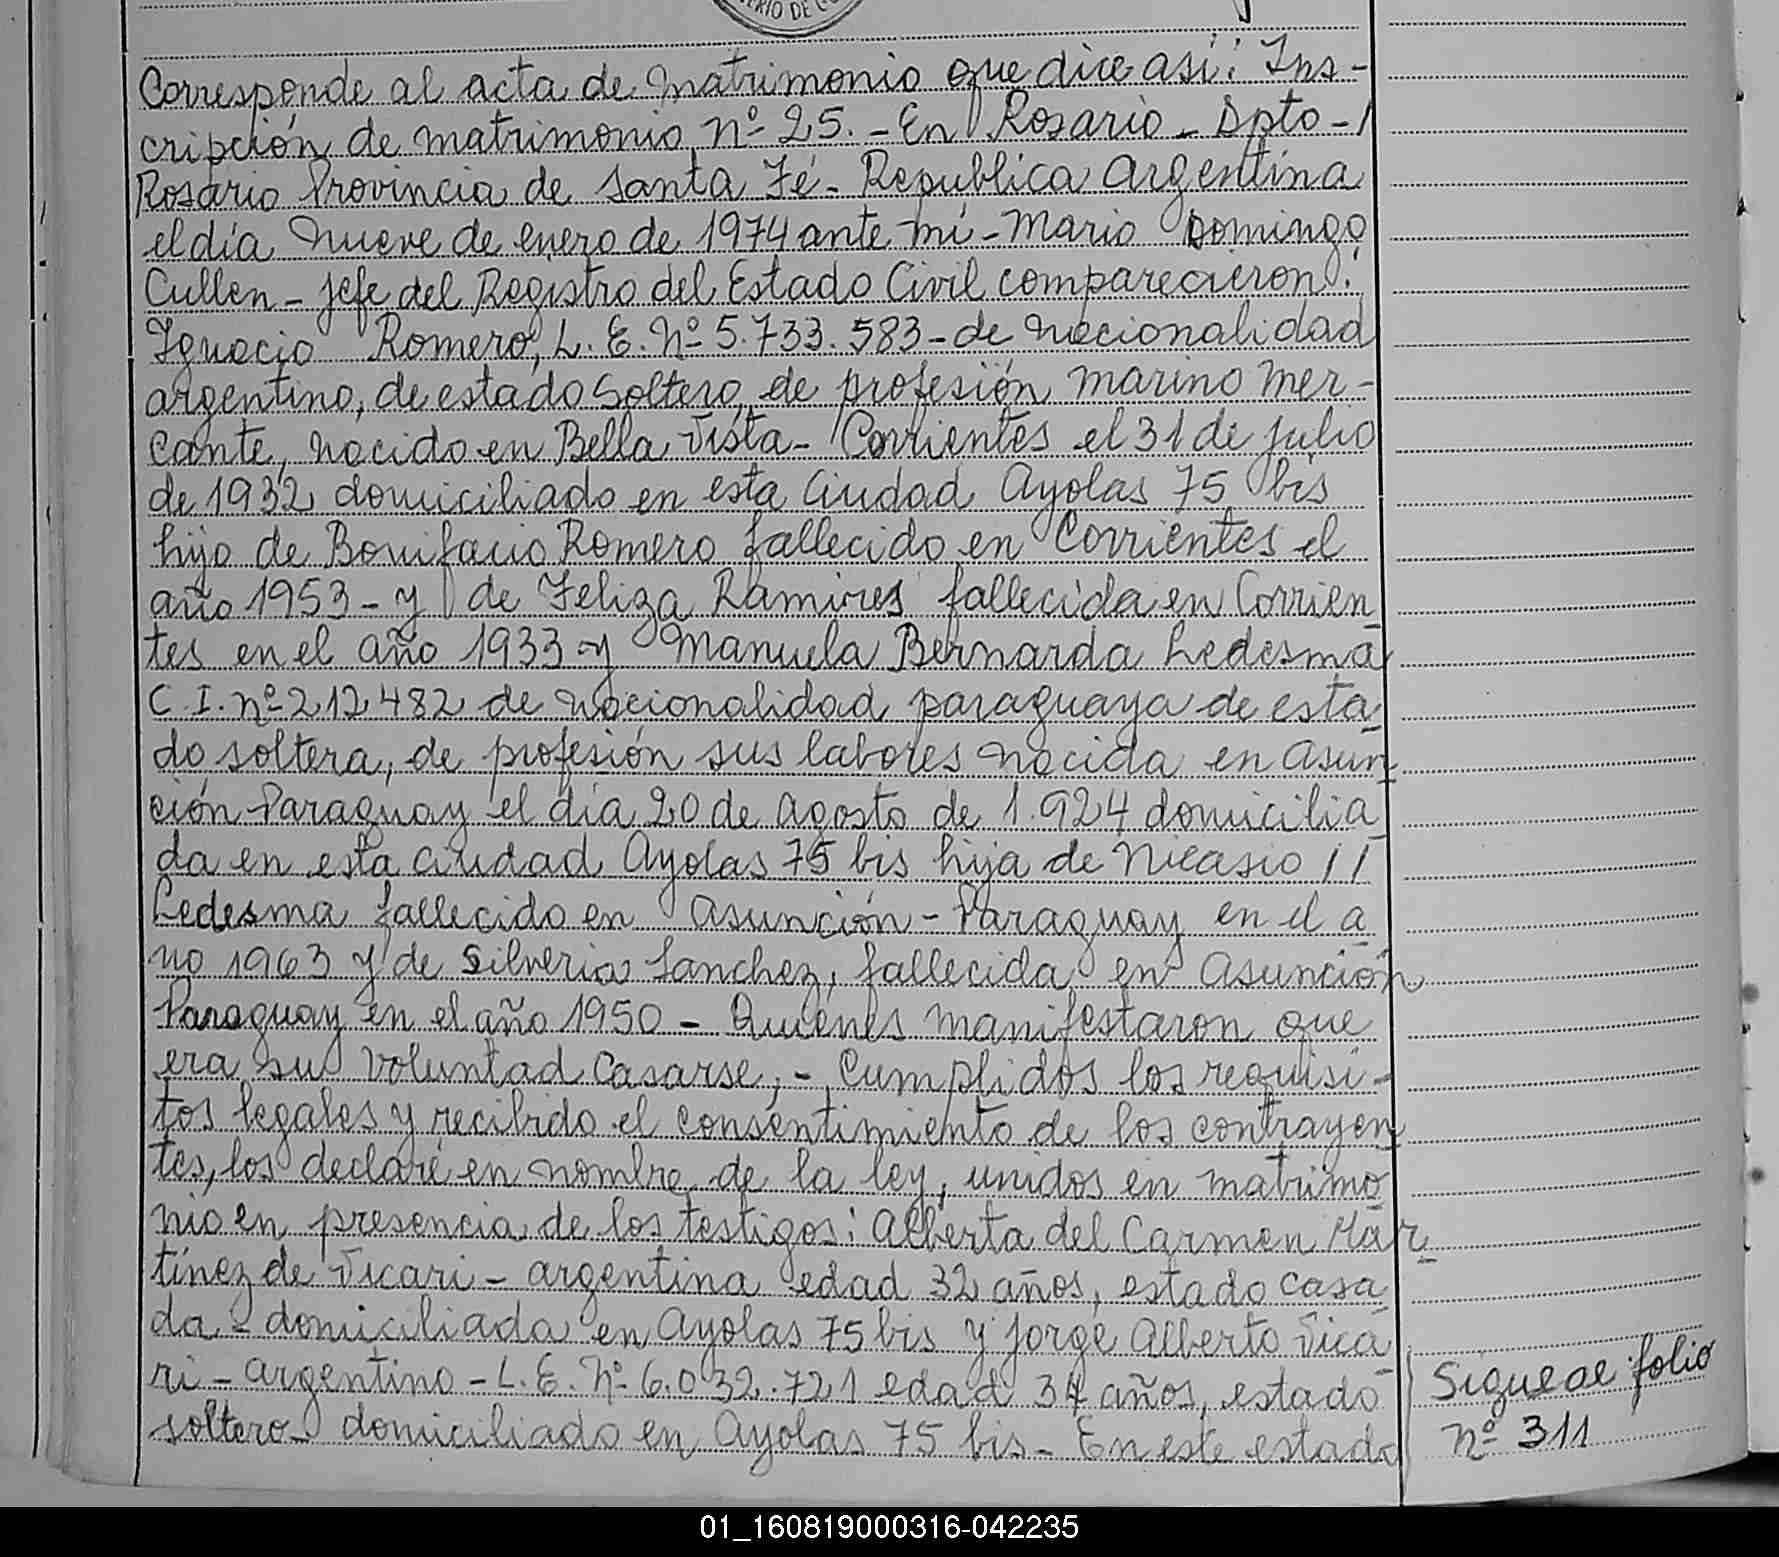 Corresponde al acta de matrimonio que dice así: Ins-
cripción de matrimonio nº 25.-En Rosario - Dpto-/
Rosario Provincia de Santa Fé- Republica argentina
el día nueve de enero de 1974 ante mí-Mario Domingo
Cullen-jefe del Registro del Estado Civil comparecieron:
Ignacio Romero, L. E. Nº 5.733.583-de nacionalidad
argentino, de estado soltero, de profesión marino mer-
cante, nacido en Bella Vista- Corrientes el 31 de julio
de 1932 domiciliado en esta ciudad Ayolas 75 bis
hijo de Bonifacio Romero fallecido en Corrientes el
año 1953-y de Feliza Ramires fallecida en Corrien
tes en el año 1933-y Manuela Bernarda Ledesma
C.I. nº 212482 de nacionalidad paraguaya de esta
do soltera, de profesión sus labores nacida en Asun
ción Paraguay el día 20 de agosto de 1.924 domicilia
da en esta ciudad Ayolas 75 bis hija de Nicasio //
Ledesma fallecido en Asunción-Paraguay en el a
no 1963 y de Silveria Sanchez, fallecida en Asunción
Paraguay en el año 1950 - Quienes manifestaron que
era su voluntad casarse,- Cumplidos los requisi-
tos legales y recibido el consentimiento de los contrayen
tes, los declaré en nombre de la ley, unidos en matrimo
nio en presencia de los testigos: Alberta del Carmen Mar
tínez de Vicari-argentina edad 32 años, estado casa
da-domiciliada en Ayolas 75 bis y Jorge Alberto Vica
ri-argentino-L.E. Nº 6.032.721 edad 34 años, estado
soltero-domiciliado en Ayolas 75 bis-En este estado
Sigue al folio
nº 311
01_160819000316-042235